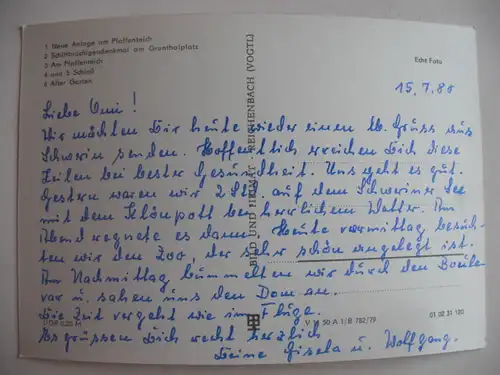 1 Neue Anlage am Pfaffenteich
2 Schiffbrüchigendenkmal am Grunthalplatz
3 Am Pfaffenteich
4 und 5 Schloß
6 Alter Garten
Echt Foto
15.7.80
Liebe Omi!
Wir möchten Dir heute wieder einen lb. Gruss aus
Schwerin senden. Hoffentlich erreichen Dich diese
Zeilen bei bester Gesundheit. Uns geht es gut.
Gestern waren wir 2 Std. auf dem Schweriner See
mit dem Schönpott bei herrlichem Wetter. Am
Abend regnete es dann. Heute vormittag besuch-
ten wir den Zoo, der sehr schön angelegt ist.
Am Nachmittag bummelten wir durch den
u. sahen uns den Dom an.
Die Zeit vergeht wie im Fluge.
Es grüssen Dich recht herzlich
Deine Gisela u. Wolfgang.
BILD UND HEIMAT REICHENBACH (VOGTL)
V 11 50 A 1/B 782/79
01 02 31 120